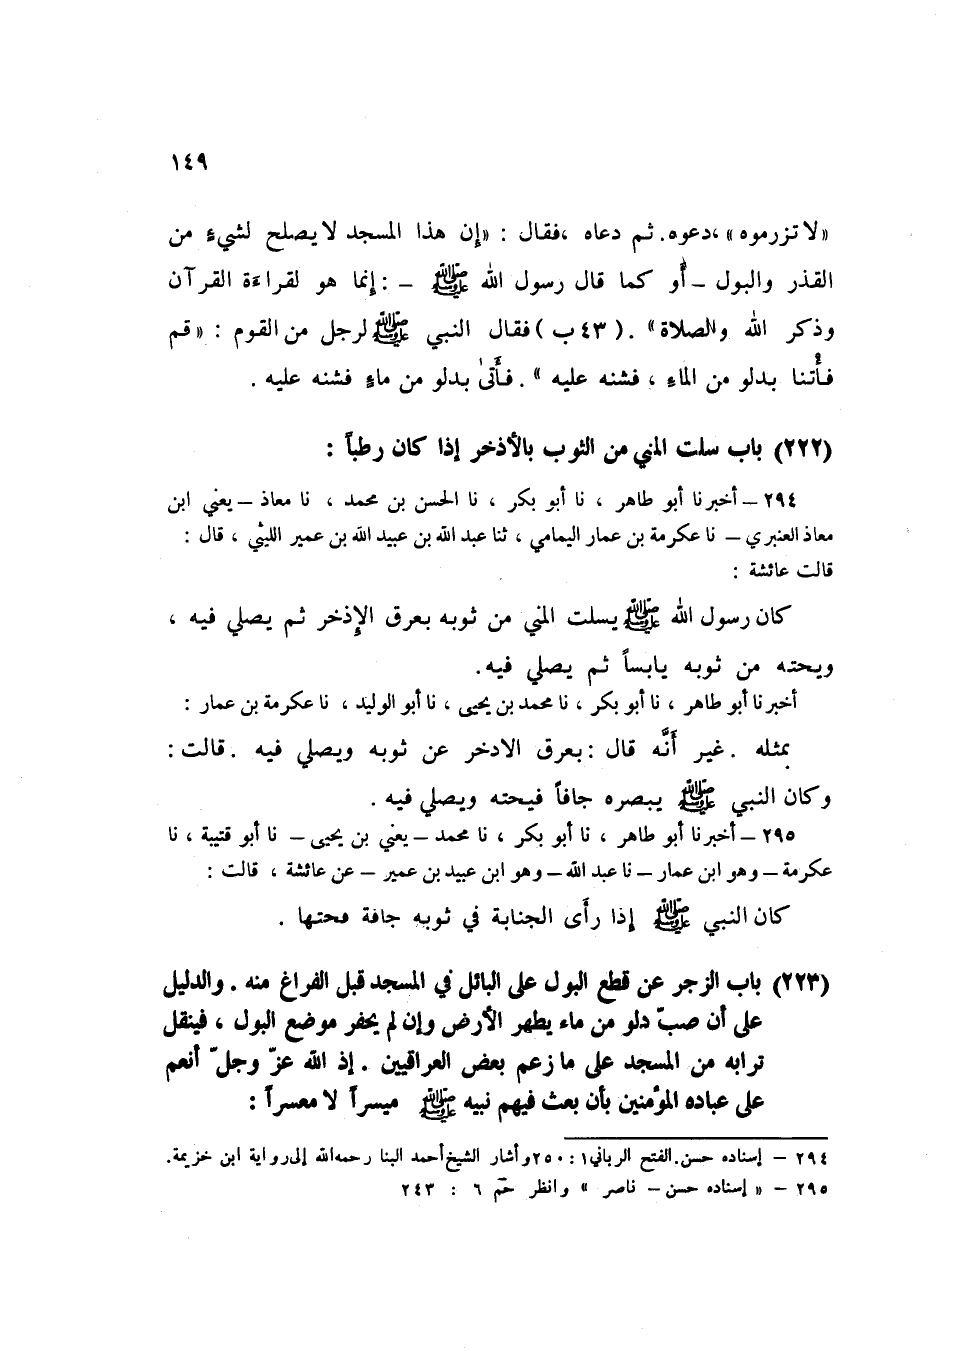 ١٤٩
«لا تزرموه» ،دعوه. ثم دعاه ،فقال : «إن هذا المسجد لا يصلح لشيء من
القذر والبول ـ أو كما قال رسول الله ﷺ ـ : إنما هو لقراءة القرآن
وذكر الله والصلاة» . ( ٤٣ ب ) فقال النبي ﷺ لرجل من القوم : «قم
فأتنا بدلو من الماء ، فشنه عليه » . فأتى بدلو من ماء فشنه عليه .
(٢٢٢) باب سلت المني من الثوب بالأذخر إذا كان رطباً :
٢٩٤ ـ أخبرنا أبو طاهر ، نا أبو بكر ، نا الحسن بن محمد ، نا معاذ ـ يعني ابن
معاذ العنبري ـ نا عكرمة بن عمار اليمامي ، ثنا عبد الله بن عبيد الله بن عمير الليثي ، قال :
قالت عائشة :
كان رسول الله ﷺ يسلت المني من ثوبه بعرق الإذخر ثم يصلي فيه ،
ويحته من ثوبه يابساً ثم يصلي فيه.
أخبرنا أبو طاهر ، نا أبو بكر ، نا محمد بن يحيى ، نا أبو الوليد ، نا عكرمة بن عمار :
بمثله . غير أنَّه قال : بعرق الادخر عن ثوبه ويصلي فيه . قالت :
وكان النبي ﷺ يبصره جافاً فيحته ويصلي فيه .
٢٩٥ ـ أخبرنا أبو طاهر ، نا أبو بكر ، نا محمد ـ يعني بن يحيى ـ نا أبو قتيبة ، نا
عكرمة ـ وهو ابن عمار ـ نا عبد الله ـ وهو ابن عبيد بن عمير ـ عن عائشة ، قالت :
كان النبي ﷺ إذا رأى الجنابة في ثوبه جافة فحتها .
(٢٢٣) باب الزجر عن قطع البول على البائل في المسجد قبل الفراغ منه . والدليل
على أن صبّ دلو من ماء يطهر الأرض وإن لم يحفر موضع البول ، فينقل
ترابه من المسجد على ما زعم بعض العراقيين . إذ الله عزّ وجلّ أنعم
على عباده المؤمنين بأن بعث فيهم نبيه ﷺ ميسراً لا معسراً :
٢٩٤ ـ إسناده حسن. الفتح الرباني ١ : ٢٥٠ وأشار الشيخ أحمد البنا رحمه الله إلى رواية ابن خزيمة.
٢٩٥ ـ « إسناده حسن ـ ناصر » وانظر حم ٦ : ٢٤٣